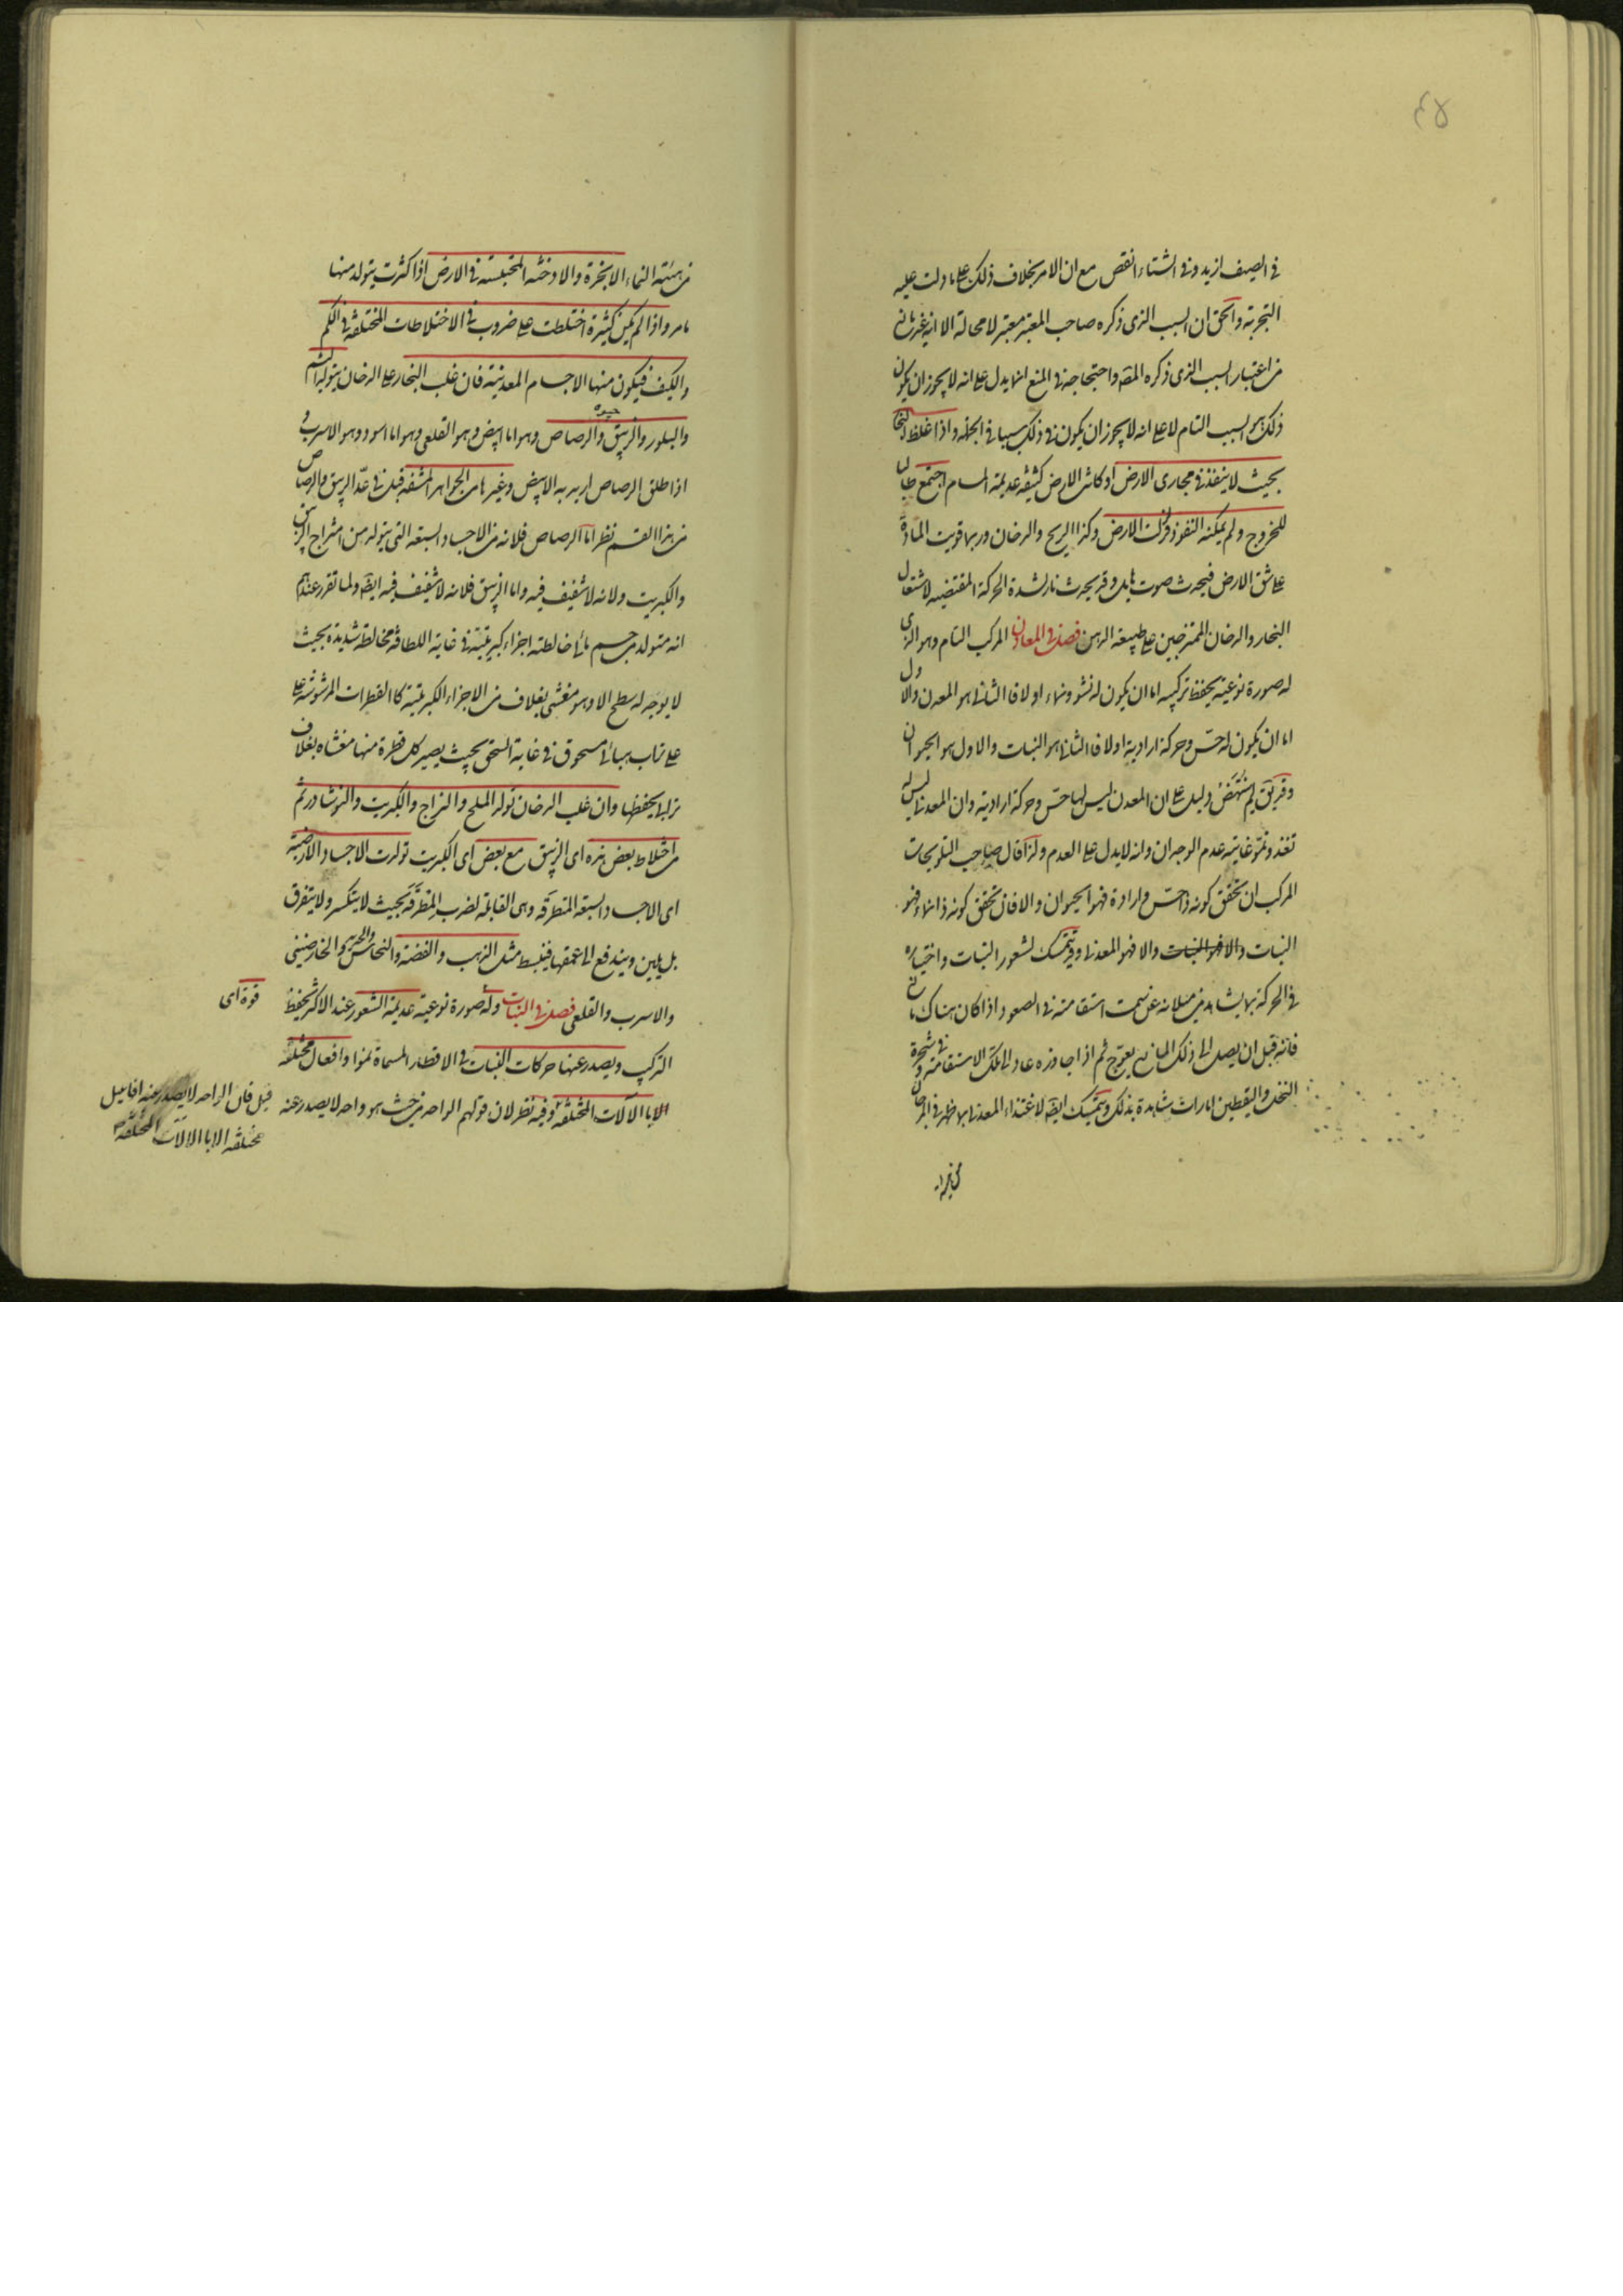 ٤٥
فى الصيف ازيد وفى الشتاء انقص مع ان الامر بخلاف ذلك على ما دلت عليه
التجربة والحق ان السبب الذى ذكره صاحب المعتبر معتبر لا محالة الا انه غير مانع
من اعتبار السبب الذى ذكره المقه واحتجاجه فى المنع انما يدل على انه لا يجوز ان يكون
ذلك هو السبب التام لا على انه لا يجوز ان يكون فى ذلك سببا فى الجملة واذا غلظ البخار
بحيث لا ينفذ فى مجارى الارض او كانت الارض كثيفة عديمة المسام اجتمع طالبا
للخروج ولم يمكنه النفوذ فزلزلت الارض وكذا الريح والدخان وربما قويت المادة
على شق الارض فيحدث صوت هايل وقد يحدث نار لشدة الحركة المقتضية لاشتعال
البخار والدخان الممتزجين على طبيعة الدهن فصل فى المعادن المركب التام وهو الذى
له صورة نوعية يحفظ تركيبه اما ان يكون له نشو ونماء او لا فا الثانى هو المعدن والاول
اما ان يكون له حس وحركة ارادية او لا فا الثانى هو النبات والاول هو الحيوان
وقد يق لم ينتهض دليل على ان المعدن ليس لها حس وحركة ارادية وان المعدنى ليس له
تغذ ونمو غايته عدم الوجدان وانه لا يدل على العدم ولذا قال صاحب التلويحات
المركب ان تحقق كونه ذا حس وارادة فهو الحيوان والا فان تحقق كونه ذا نماء فهو
النبات والا فهو النبات والا فهو المعدنى وقد يتمسك لشعور النبات واختياره
فى الحركة بما يشاهد من ميلانه عن سمت استقامته فى الصعود اذا كان هناك مانع
فانه قبل ان يصل الى ذلك المانع يعوج ثم اذا جاوزه عاد الى تلك الاستقامة وفى شجرة
النخل واليقطين امارات شاهدة بذلك ويتمسك ايضه لاغتذاء المعدنى بما ظهر فى المرجان
من هيئة النماء الابخرة والادخنة المحتبسة فى الارض اذا كثرت يتولد منها
ما مر واذا لم يكن كثيرة اختلطت على ضروب فى الاختلاطات المختلفة فى الكم
والكيف فيكون منها الاجسام المعدنية فان غلب البخار على الدخان يتولد اليشم
والبلور والزيبق والرصاص وهو اما ابيض وهو القلعى وهو اما اسود وهو الاسرب و
جيوه
اذا طلق الرصاص اريد به الابيض وغيرها من الجواهر المشفة قيل فى عد الزيبق والرصاص
من هذا القسم نظر اما الرصاص فلانه من الاجساد السبعة التى يتولد من امتزاج الزيبق
والكبريت ولانه لا شفيف فيه واما الزيبق فلانه لا شفيف فيه ايضه ولما تقرر عندهم
انه متولد من جسم مائى خالطته اجزاء كبريتية فى غاية اللطافة مخالطة شديدة بحيث
لا يوجد له سطح الا وهو مغشى بغلاف من الاجزاء الكبريتية كا القطرات المرشوشة على
على تراب هبائى مسحوق فى غاية السحق بحيث يصير كل قطرة منها مغشاه بغلاف
ترابى يحفظها وان غلب الدخان تولد الملح والزاج والكبريت والنوشادر ثم
من اختلاط بعض هذه اى الزيبق مع بعض اى الكبريت تولدت الاجساد الارضية
اى الاجساد السبعة المتطرقة وهى القابلة لضرب المطرقة بحيث لا يتكسر ولا يتفرق
بل يلين ويندفع الى عمقها فينبسط مثل الذهب والفضة والنحاس والحديد والخارصينى
والاسرب والقلعى فصل فى النبات وله صورة نوعية عديمة الشعور عند الاكثر يحفظ
قوة اى
التركيب ويصدر عنها حركات النبات فى الاقطار المسماة نموا وافعال مختلفة
الا با الآلات المختلفة وفيه نظر لان قولهم الواحد من حيث هو واحد لا يصدر عنه
قيل فان الواحد لا يصدر عنه افاعيل
مختلفة الا با الالات المختلفة